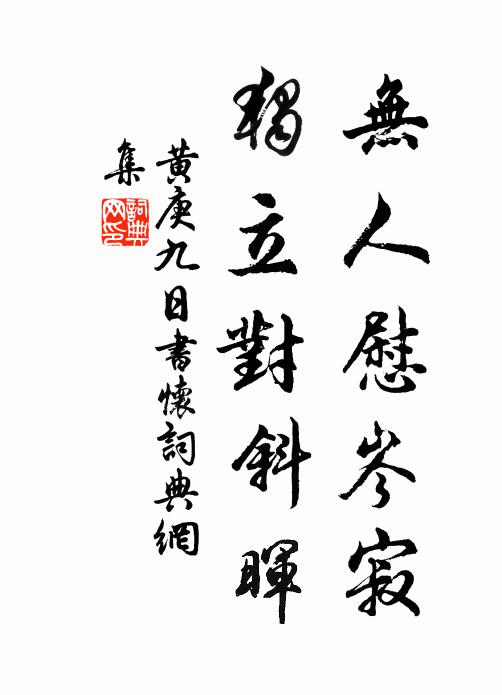 無人慰岑寂
獨立對斜暉
黄庚九日書懷詞典網
集
詞典
网印